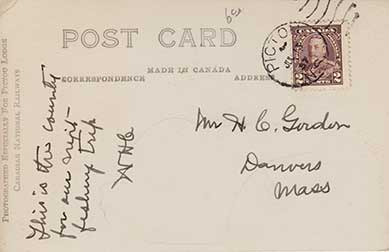 6c
POST CARD
MADE IN CANADA
CORRESPONDENCE
ADDRESS
PHOTOGRAPHED ESPECIALLY FOR PICTOU LODGE
CANADIAN NATIONAL RAILWAYS
This is the county
for our next
fishing trip
WHC
PICTO
2 2
Mr H. C. Gordon
Danvers
Mass